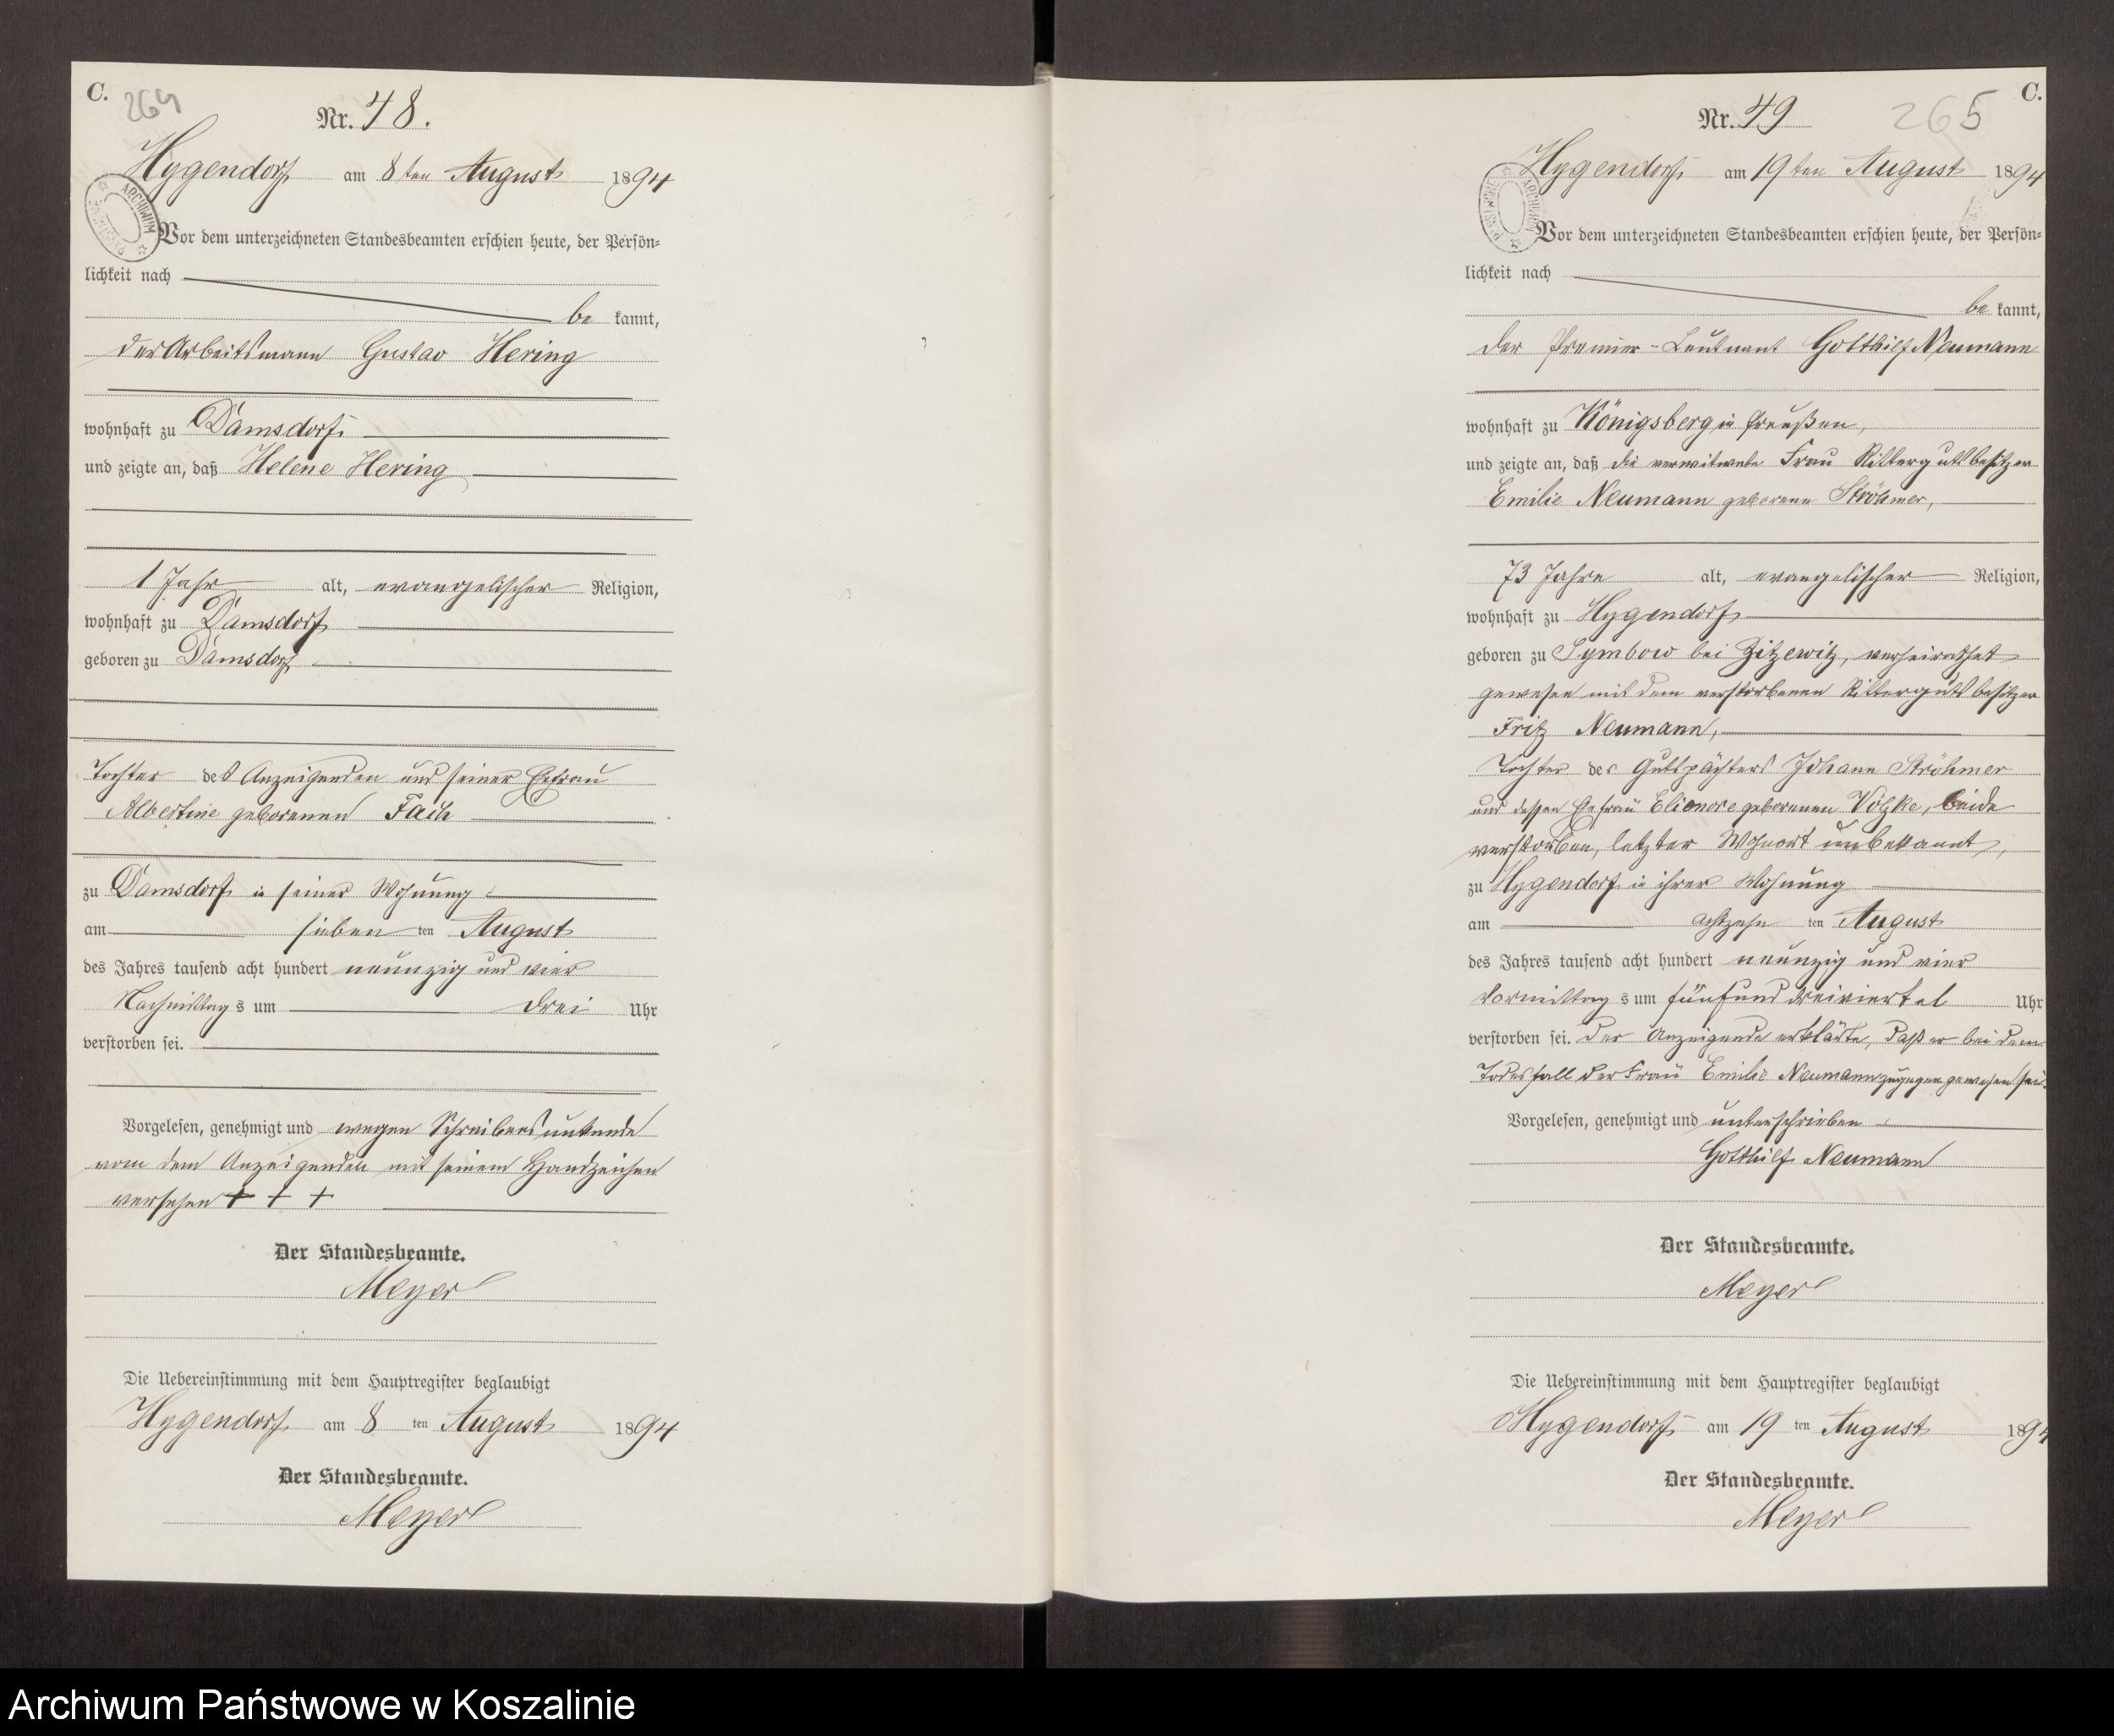 C.
264
Nr. 48.
Hygendorf am 8ten August 1894
Vor dem unterzeichneten Standesbeamten erschien heute, der Persön=
lichkeit nach
be kannt,
der Arbeitsmann Gustav Hering
wohnhaft zu Damsdorf
und zeigte an, daß Helene Hering
1 Jahr alt, evangelischer Religion,
wohnhaft zu Damsdorf
geboren zu Damsdorf
Tochter des Anzeigenden und seiner Ehefrau
Albertine geborenen
zu Damsdorf in seiner Wohnung
am sieben ten August
des Jahres tausend acht hundert neunzig und vier
Nachmittag s um drei Uhr
verstorben sei.
Vorgelesen, genehmigt und wegen Schreibensunkunde
von dem Anzeigenden mit seinem Handzeichen
versehen + + +
Der Standesbeamte.
Meyer
Die Uebereinstimmung mit dem Hauptregister beglaubigt
Hygendorf am 8 ten August 1894
Der Standesbeamte.
Meyer
C.
265
Nr. 49
Hygendorf am 19ten August 1894
Vor dem unterzeichneten Standesbeamten erschien heute, der Persön=
lichkeit nach
be kannt,
der Premier-Leutnant Gotthilf Neumann
wohnhaft zu Königsberg in Preußen,
und zeigte an, daß die verwitwete Frau Rittergutsbesitzer
Emilie Neumann geborene Ströhmer,
73 Jahre alt, evangelischer Religion,
wohnhaft zu Hygendorf
geboren zu Symbow bei Zitzewitz, verheirathet
gewesen mit dem verstorbenen Rittergutsbesitzer
Fritz Neumann,
Tochter des Gutspächters Johann Ströhmer
und dessen Ehefrau Elionore geborenen Völzke, beide
verstorben, letzter Wohnort unbekannt,
zu Hygendorf in ihrer Wohnung
am achtzehn ten August
des Jahres tausend acht hundert neunzig und vier
Vormittag s um fünfunddreiviertel Uhr
verstorben sei. Der Anzeigende erklärte, daß er bei dem
Todesfall der Frau Emilie Neumann zugegen gewesen sei.
Vorgelesen, genehmigt und unterschrieben
Gotthilf Neumann
Der Standesbeamte.
Meyer
Die Uebereinstimmung mit dem Hauptregister beglaubigt
Hygendorf am 19 ten August 1894
Der Standesbeamte.
Meyer
Archiwum Państwowe w Koszalinie